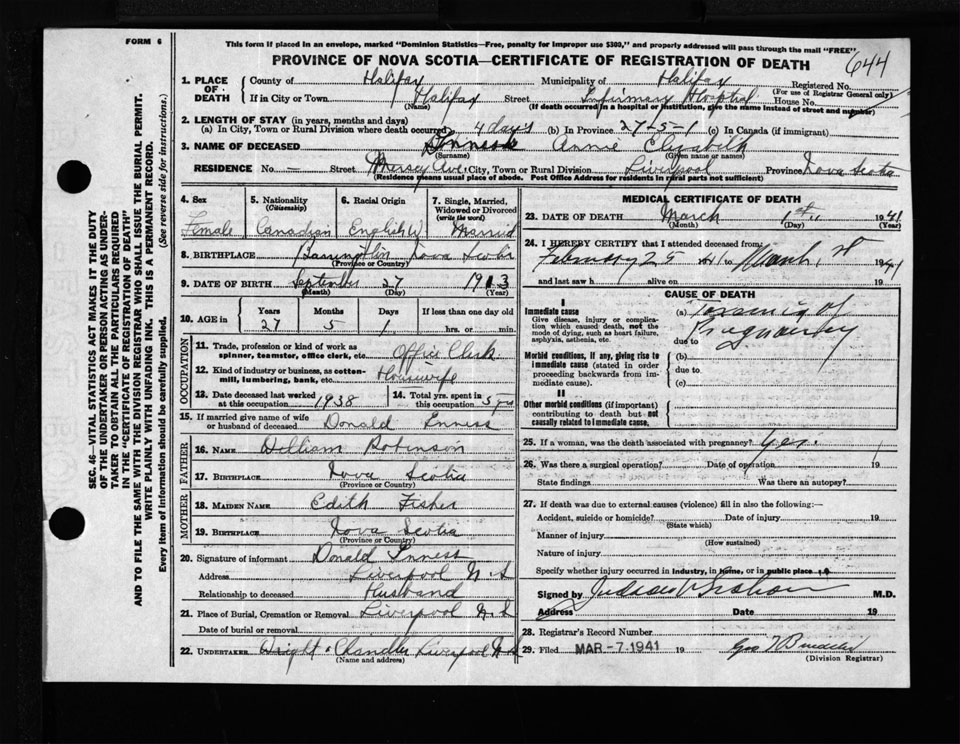 FORM 6
This form if placed in an envelope, marked "Dominion Statistics—Free, penalty for improper use $300," and properly addressed will pass through the mail "FREE"
PROVINCE OF NOVA SCOTIA—CERTIFICATE OF REGISTRATION OF DEATH
644
SEC. 46—VITAL STATISTICS ACT MAKES IT THE DUTY
OF THE UNDERTAKER OR PERSON ACTING AS UNDER-
TAKER TO OBTAIN ALL THE PARTICULARS REQUIRED
IN THE "CERTIFICATE OF REGISTRATION OF DEATH"
AND TO FILE THE SAME WITH THE DIVISION REGISTRAR WHO SHALL ISSUE THE BURIAL PERMIT.
WRITE PLAINLY WITH UNFADING INK. THIS IS A PERMANENT RECORD.
Every item of information should be carefully supplied. (See reverse side for instructions.)
1. PLACE OF DEATH
County of Halifax Municipality of Halifax Registered No.
(For use of Registrar General only)
If in City or Town Halifax Street Infirmary Hospital House No.
(Name) (If death occurred in a hospital or institution, give the name instead of street and number)
2. LENGTH OF STAY (in years, months and days)
(a) In City, Town or Rural Division where death occurred 4 days (b) In Province 27-5-1 (c) In Canada (if immigrant)
3. NAME OF DECEASED Inness Annie Elizabeth
(Surname) (Given name or names)
RESIDENCE No. — Street Mersey Ave. City, Town or Rural Division Liverpool Province Nova Scotia
(Residence means usual place of abode. Post Office Address for residents in rural parts not sufficient)
4. Sex
Female
5. Nationality
(Citizenship)
Canadian
6. Racial Origin
English W
7. Single, Married,
Widowed or Divorced
(write the word)
Married
8. BIRTHPLACE Barrington Nova Scotia
(Province or Country)
9. DATE OF BIRTH September 27 1913
(Month) (Day) (Year)
10. AGE in
Years Months Days If less than one day old
27 5 1 hrs. or min.
OCCUPATION
11. Trade, profession or kind of work as
spinner, teamster, office clerk, etc. Office Clerk
12. Kind of industry or business, as cotton-
mill, lumbering, bank, etc. Housewife
13. Date deceased last worked
at this occupation 1938
14. Total yrs. spent in
this occupation 5 yrs
15. If married give name of wife
or husband of deceased Donald Inness
FATHER
16. NAME William Robinson
17. BIRTHPLACE Nova Scotia
(Province or Country)
MOTHER
18. MAIDEN NAME Edith Fisher
19. BIRTHPLACE Nova Scotia
(Province or Country)
20. Signature of informant Donald Inness
Address Liverpool N S
Relationship to deceased Husband
21. Place of Burial, Cremation or Removal Liverpool N.S
Date of burial or removal
22. UNDERTAKER Wright & Chandler Liverpool N.S
(Name and address)
MEDICAL CERTIFICATE OF DEATH
23. DATE OF DEATH March 1st 1941
(Month) (Day) (Year)
24. I HEREBY CERTIFY that I attended deceased from:
February 25 41 to March 1st 1941
and last saw h alive on 19
CAUSE OF DEATH
I
Immediate cause
Give disease, injury or complica-
tion which caused death, not the
mode of dying, such as heart failure,
asphyxia, asthenia, etc.
(a) Toxemia of
Pregnancy
due to
Morbid conditions, if any, giving rise to
immediate cause (stated in order
proceeding backwards from im-
mediate cause).
(b)
due to
(c)
II
Other morbid conditions (if important)
contributing to death but not
causally related to immediate cause.
25. If a woman, was the death associated with pregnancy? yes.
26. Was there a surgical operation? Date of operation 19
State findings Was there an autopsy?
27. If death was due to external causes (violence) fill in also the following:—
Accident, suicide or homicide? Date of injury 19
(State which)
Manner of injury
(How sustained)
Nature of injury
Specify whether injury occurred in industry, in home, or in public place
Signed by M.D.
Address Date 19
28. Registrar's Record Number
29. Filed MAR - 7 - 1941 19
(Division Registrar)